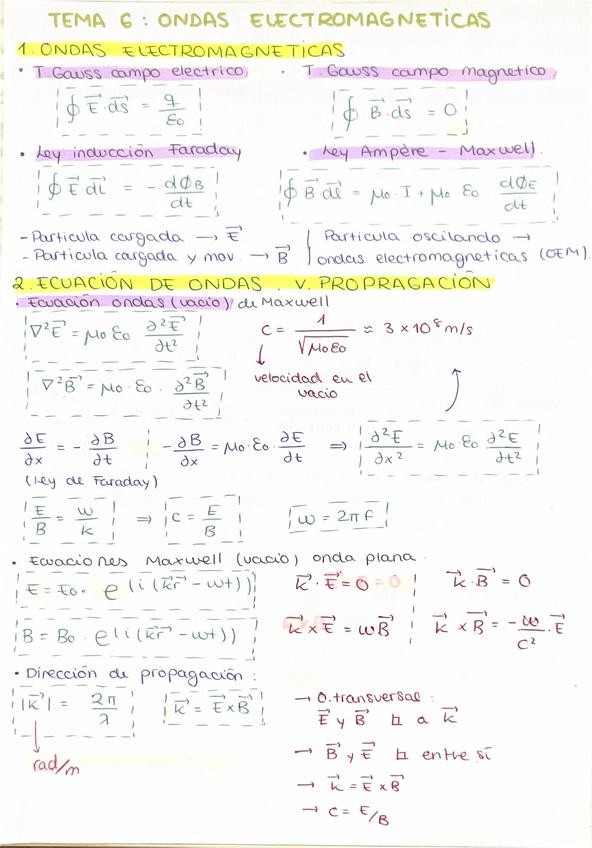 TEMA 6: ONDAS ELECTROMAGNETICAS
1. ONDAS ELECTROMAGNETICAS
• T. Gauss campo electrico • T. Gauss campo magnetico
∮ E⃗·ds⃗ = q/εo ∮ B⃗·ds⃗ = 0
• Ley inducción Faraday • Ley Ampère - Maxwell.
∮ E⃗ dl⃗ = - dØB/dt ∮ B⃗·dl⃗ = μo·I + μo·εo dØE/dt
- Particula cargada → E⃗ | Particula oscilando →
- Particula cargada y mov. → B⃗ | ondas electromagneticas (OEM).
2. ECUACIÓN DE ONDAS. V. PROPRAGACIÓN
• Ecuación ondas (vacio) de Maxwell
∇²E⃗ = μo εo ∂²E⃗/∂t² c = 1/√μoεo ≈ 3 × 10⁸ m/s
∇²B⃗ = μo·εo · ∂²B⃗/∂t² velocidad en el vacio
∂E/∂x = - ∂B/∂t - ∂B/∂x = μo·εo·∂E/∂t ⇒ ∂²E/∂x² = μo·εo ∂²E/∂t²
(Ley de Faraday)
E/B = w/k ⇒ c = E/B w = 2πf
• Ecuaciones Maxwell (vacio) onda plana.
E = Eo· e^(i(k⃗r⃗ - wt)) k⃗·E⃗ = 0 | k⃗·B⃗ = 0
B = Bo· e^(i(k⃗r⃗ - wt)) k⃗ x E⃗ = wB⃗ | k⃗ x B⃗ = -w/c² · E⃗
• Dirección de propagación:
|k⃗| = 2π/λ k⃗ = E⃗ x B⃗ → O. transversal:
E⃗ y B⃗ ⊾ a k⃗
rad/m → B⃗ y E⃗ ⊾ entre sí
→ k⃗ = E⃗ x B⃗
→ c = E/B